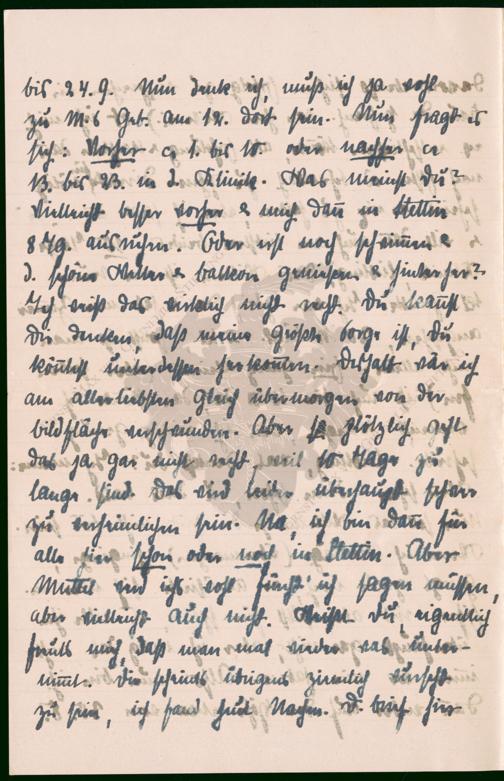 bis 24.9. Nun denk ich, muß ich ja wohl
zu M.s Geb. am 12. dort sein. Nun fragt es
sich: Vorher c. 1. bis 10. oder nachher ca
13. bis 23. in d. Klinik. Was meinst Du?
Vielleicht besser vorher & mich dan̄ in Stettin
8 Tg. ausruhen. Oder erst noch schwim̄en &
d. schöne Wetter & Balkon geniessen & hinterher?
Ich weiß das wirklich nicht recht. Du kannst
Dir denken, daß meine größte Sorge ist, Du
kön̄test unterdessen herkom̄en. Deshalb wär ich
am allerliebsten gleich übermorgen von der
Bildfläche verschwunden. Aber so plötzlich geht
das ja gar nicht recht, weil 10 Tage zu
lange sind. Das wird leider überhaupt schwer
zu verheimlichen sein. Na, ich bin dan̄ für
alle hier schon oder noch in Stettin. Aber
Mutti wird ichs wohl fürcht' ich sagen müssen,
aber vielleicht auch nicht. Weißt Du, eigentlich
freuts mich, daß man mal wieder was unter-
nim̄t. Dir scheints übrigens ziemlich wurscht
zu sein, ich fand heut Morgen d. Brief hier